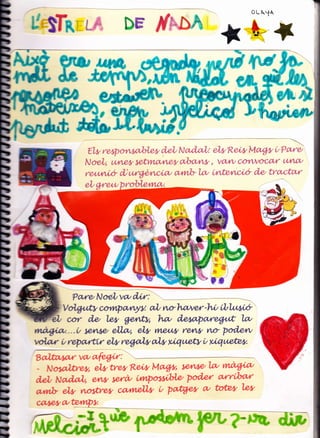 L'ESTRELA DE NADAL
OLAYA
Això era una vegada, però no fa
molt de temps, un Nadal en què les
persones estaven preocupades en si
mateixes, eren infeliços i havien
perdut tota il.lusió.
Els responsables del Nadal: els Reis Mags i Pare
Noel, unes setmanes abans, van convocar una
reunió d'urgència amb la intenció de tractar
el greu problema.
Pare Noel va dir:
- Volguts companys: al no haver-hi il·lusió
en el cor de les gents, ha desaparegut la
màgia....i sense ella, els meus rens no poden
volar i repartir els regals als xiquets i xiquetes.
Baltasar va afegir:
- Nosaltres, els tres Reis Mags, sense la màgia
del Nadal, ens serà impossible poder arribar
amb els nostres camells i patges a totes les
cases a temps.
-I què podem fer?-va dir
Melcior